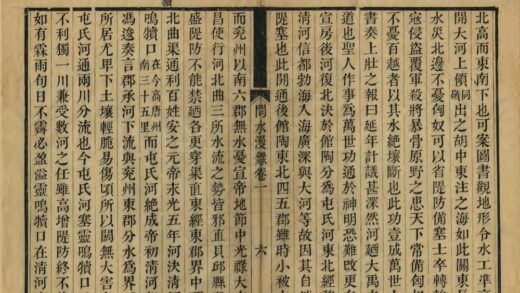 北高而東南下也可案圖書觀地形令水工準
開大河上領同嶺出之胡中東注之海如此關東
水災北邊不憂匈奴可以省隄防備塞士卒轉
寇侵盜覆軍殺將暴骨原野之患天下常備匈
不憂百越者以其水絕壤斷也此功壹成萬世
書奏上壯之報曰延年計議甚深然河廼大禹
道也聖人作事爲萬世功通於神明恐難改更
宣房後河復北決於館陶分爲屯氏河東北經
清河信都勃海入海廣深與大河等故因其自
隄塞也此開通後館陶東北四五郡雖時小被
問水漫錄卷一 六
而兗州以南六郡無水憂宣帝地節中光祿大
昌使行河北曲三所水流之勢皆邪直貝邱縣
盛隄防不能禁廼各更穿渠直東經東郡界中
北曲渠通利百姓安之元帝永光五年河決清
鳴犢口在今高唐州南三十五里而屯氏河絕成帝初清河
馮逡奏言郡承河下流與兗州東郡分水爲界
所居尤卑下土壤輕脆易傷頃所以闊無大害
屯氏河通兩川分流也今屯氏河塞靈鳴犢口
不利獨一川兼受數河之任雖高增隄防終不
如有霖雨旬日不霽必盈溢靈鳴犢口在清河